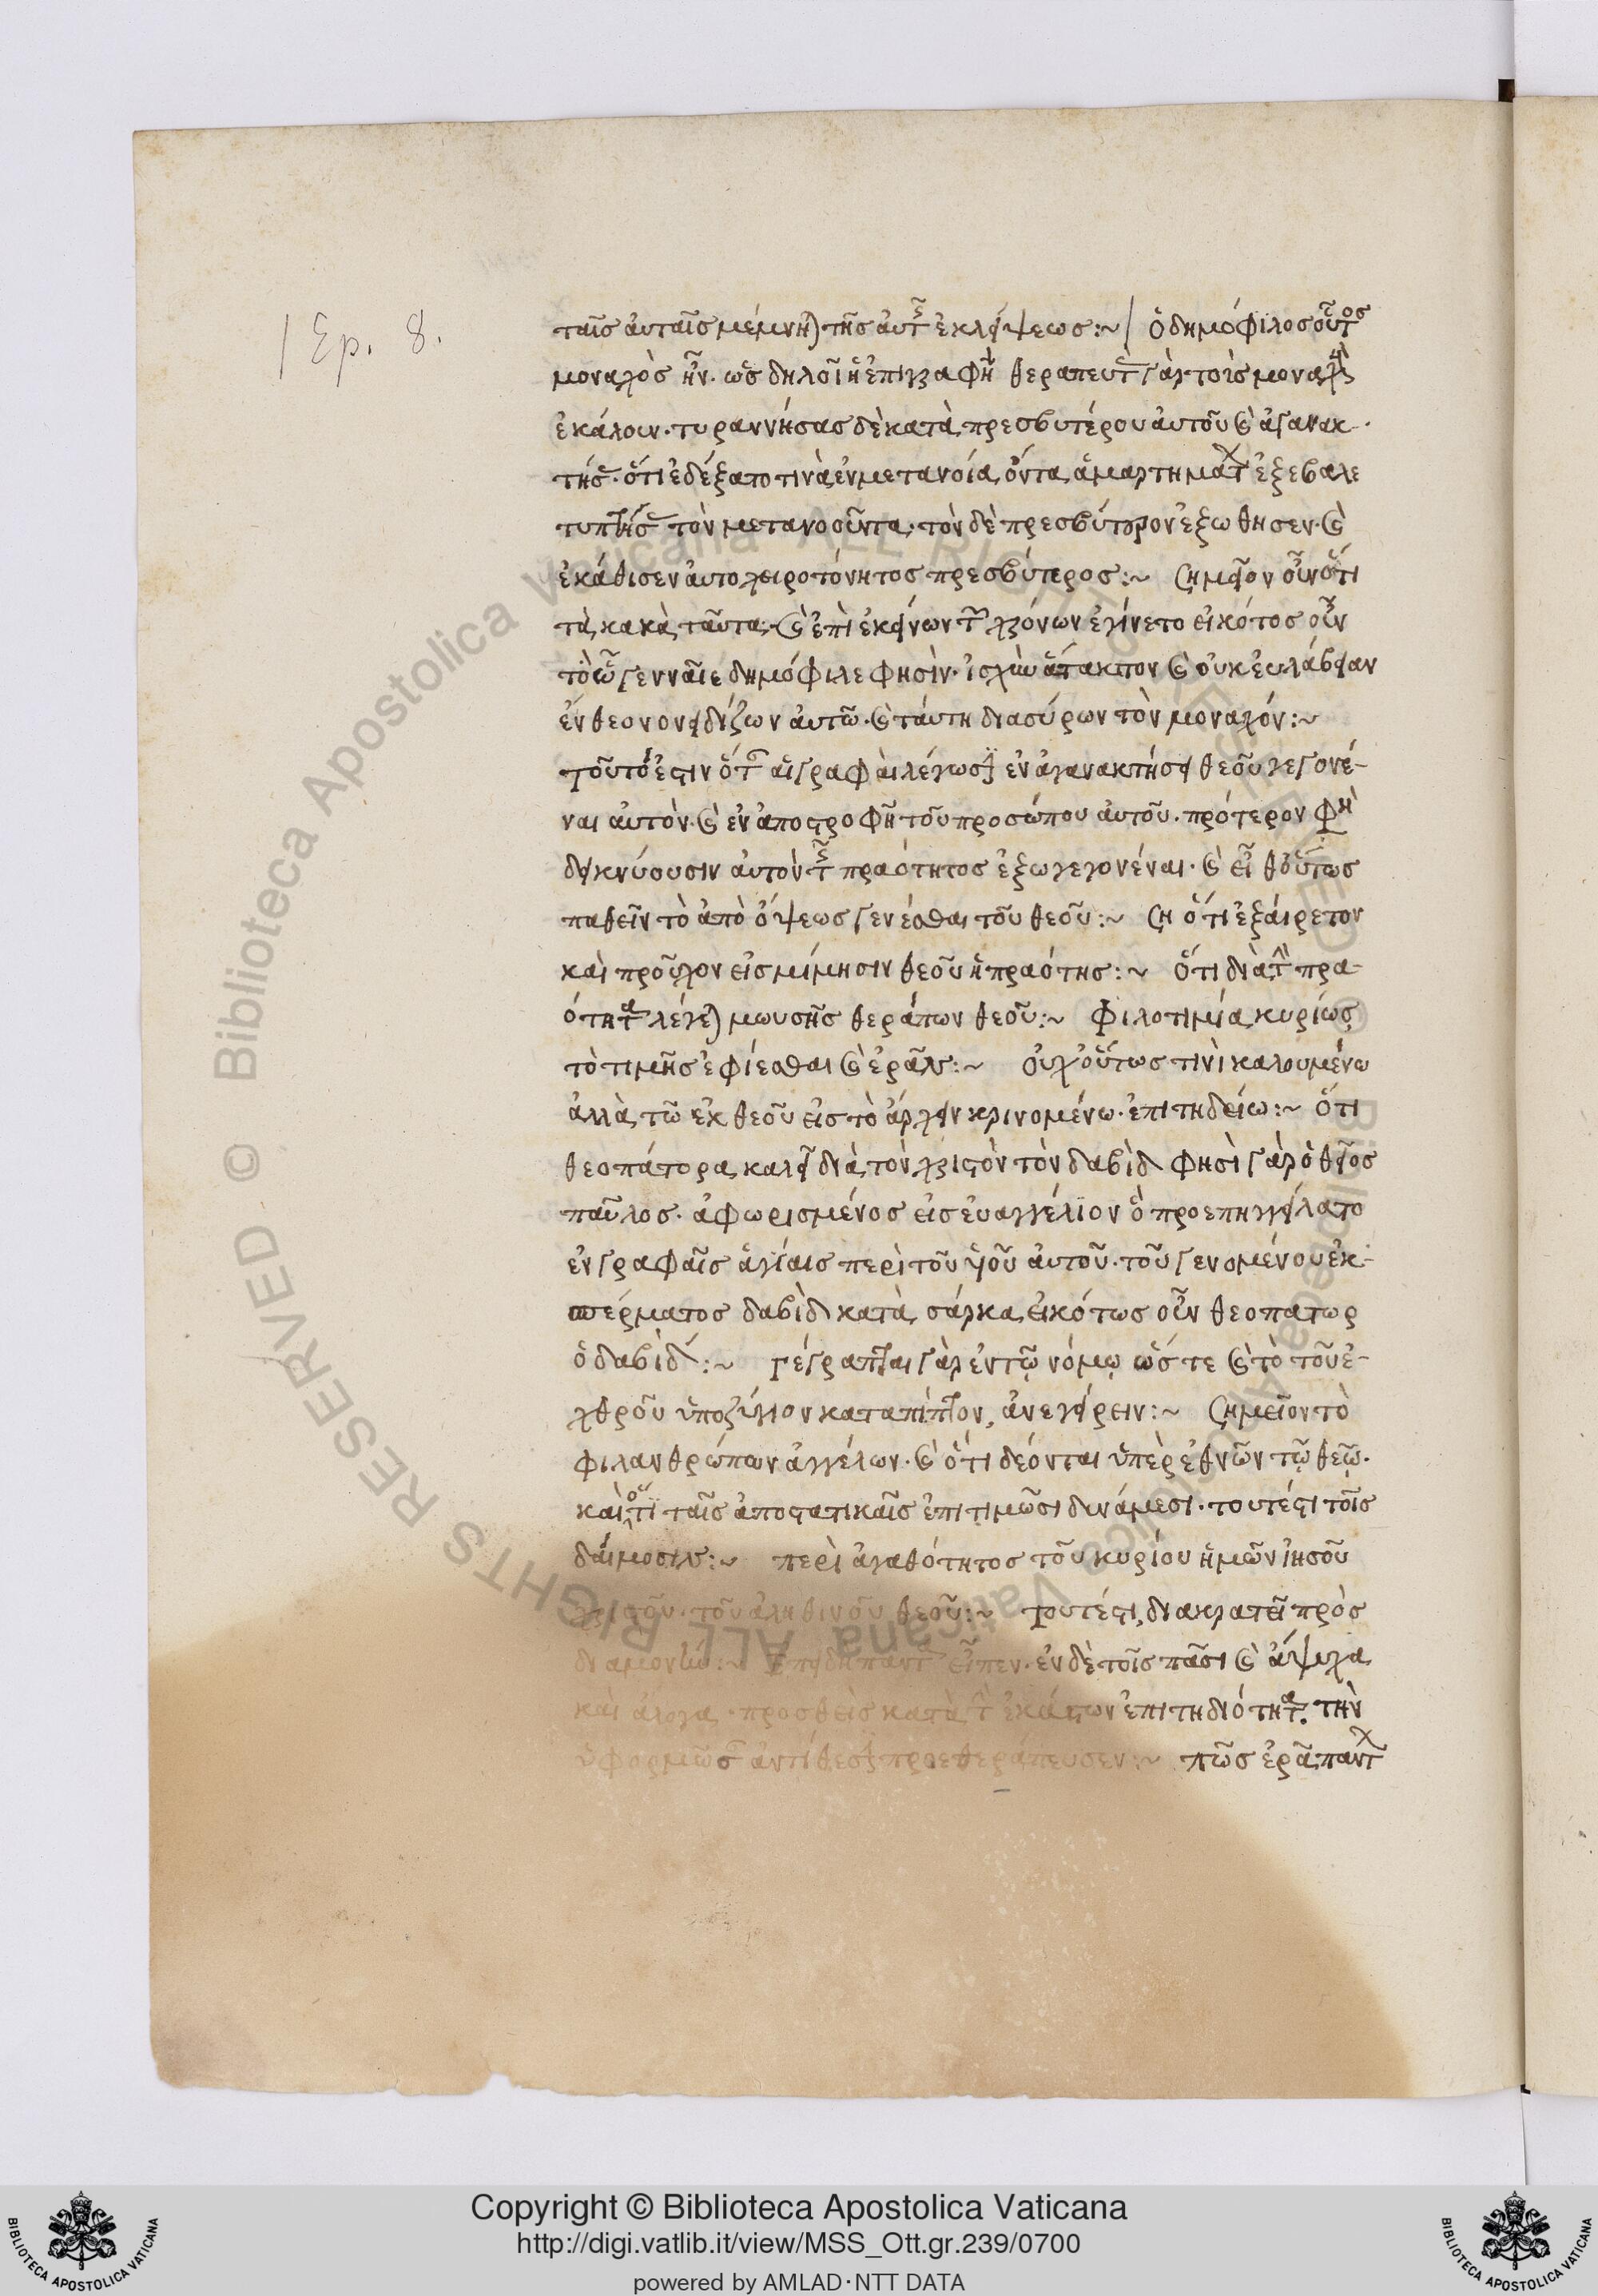 / Ep. 8.
ταῖς αὐταῖς μέμνητ(αι) τῆς αὐτ(ῆς) ἐκλείψεως :~ / ὁ δημόφιλος οὗτος
μοναχὸς ἦν· ὡς δηλοῖ ἡ ἐπιγραφὴ θεραπευτ(ὰς) γὰρ τοὺς μοναχ(οὺς)
ἐκάλουν· τυραννήσας δὲ κατὰ πρεσβυτέρου αὐτοῦ καὶ ἀγανακ-
τήσ(ας)· ὅτι ἐδέξατο τινὰ ἐν μετανοία ὄντα ἁμαρτημάτ(ων) ἐξέβαλε
τυπτήσ(ας) τὸν μετανοοῦντα· τὸν δὲ πρεσβύτερον ἐξώθησεν· καὶ
ἐκάθισεν αὐτοχειροτόνητος πρεσβύτερος :~ Σημεῖον οὖν ὅτι
τὰ κακὰ ταῦτα· καὶ ἐπὶ ἐκείνων τ(ῶν) χρόνων ἐγίνετο εἰκότος οὖν
τὸ ὦ γενναῖε δημόφιλε φησὶν· ἰσχὺν ἄτακτον καὶ οὐκ εὐλάβειαν
ἔνθεον ὀνειδίζων αὐτῶ· καὶ ταύτη διασύρων τὸν μοναχόν :~
τοῦτό ἐστιν ὅτ(αν) αἱ γραφαὶ λέγωσιν ἐν ἀγανακτήσει θεοῦ γεγονέ-
ναι αὐτὸν· καὶ ἐν ἀποστροφῆ τοῦ προσώπου αὐτοῦ· πρότερον φη(σὶ)
δεικνύουσιν αὐτὸν τ(ῆς) πραότητος ἔξω γεγονέναι· καὶ εἶθ οὕτως
παθεῖν τὸ ἀπὸ ὄψεως γενέσθαι τοῦ θεοῦ :~ Ση ὅτι ἐξαίρετον
καὶ προὖχον εἰς μίμησιν θεοῦ ἡ πραότης :~ Ὅτι διὰ τ(ὴν) πρα-
ότητα λέγετ(αι) μωυσῆς θεράπων θεοῦ :~ Φιλοτιμία κυρίως
τὸ τιμῆς ἐφίεσθαι καὶ ἐρᾶν :~ οὐχ οὕτως τινὶ καλουμένω
ἀλλὰ τῶ ἐκ θεοῦ εἰς τὸ ἄρχειν κρινομένω· ἐπιτηδείω :~ Ὅτι
θεοπάτορα καλεῖ διὰ τὸν χριστὸν τὸν δαβὶδ φησὶ γὰρ ὁ θεῖος
παῦλος· ἀφωρισμένος εἰς εὐαγγέλιον ὃ προεπηγγείλατο
ἐν γραφαῖς ἁγίαις περὶ τοῦ υἱοῦ αὐτοῦ· τοῦ γενομένου ἐκ-
σπέρματος δαβὶδ κατὰ σάρκα, εἰκότως οὖν θεοπατωρ
ὁ δαβίδ :~ Γέγραπται γὰρ ἐν τῷ νόμῳ ὥστε καὶ τὸ τοῦ ἐ-
χθροῦ ὑποζύγιον καταπίπτον, ἀνεγείρειν :~ Σημεῖον τὸ
φιλανθρώπων ἀγγέλων· καὶ ὅτι δέονται ὑπὲρ ἐθνῶν τῷ θεῷ·
καὶ ὅτι ταῖς ἀποστατικαῖς ἐπιτιμῶσι δυνάμεσι· τουτέστι τοῖς
δαίμοσιν :~ περὶ ἀγαθότητος τοῦ κυρίου ἡμῶν ἰησοῦ
χριστοῦ· τοῦ ἀληθινοῦ θεοῦ :~ τουτέστι, διακρατεῖ πρὸς
διαμονὴν :~ ἐπειδὴ παντ εἶπεν· ἐν δὲ τοῖς πᾶσι καὶ ἄψυχα
καὶ ἄλογα· προσθεὶς κατὰ τ(ὴν) ἑκάστων ἐπιτηδιότητα· τὴν
ὑφορμῶσ(αν) ἀντίθεσιν προεθεράπευσεν :~ πῶς ἐρᾶ πάντ(ων)
Copyright © Biblioteca Apostolica Vaticana
http://digi.vatlib.it/view/MSS_Ott.gr.239/0700
powered by AMLAD·NTT DATA